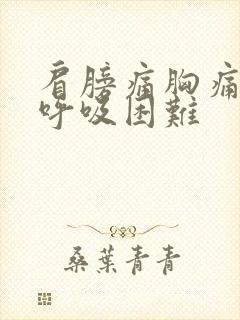 肩膀痛胸痛
呼吸困難
桑葉青青